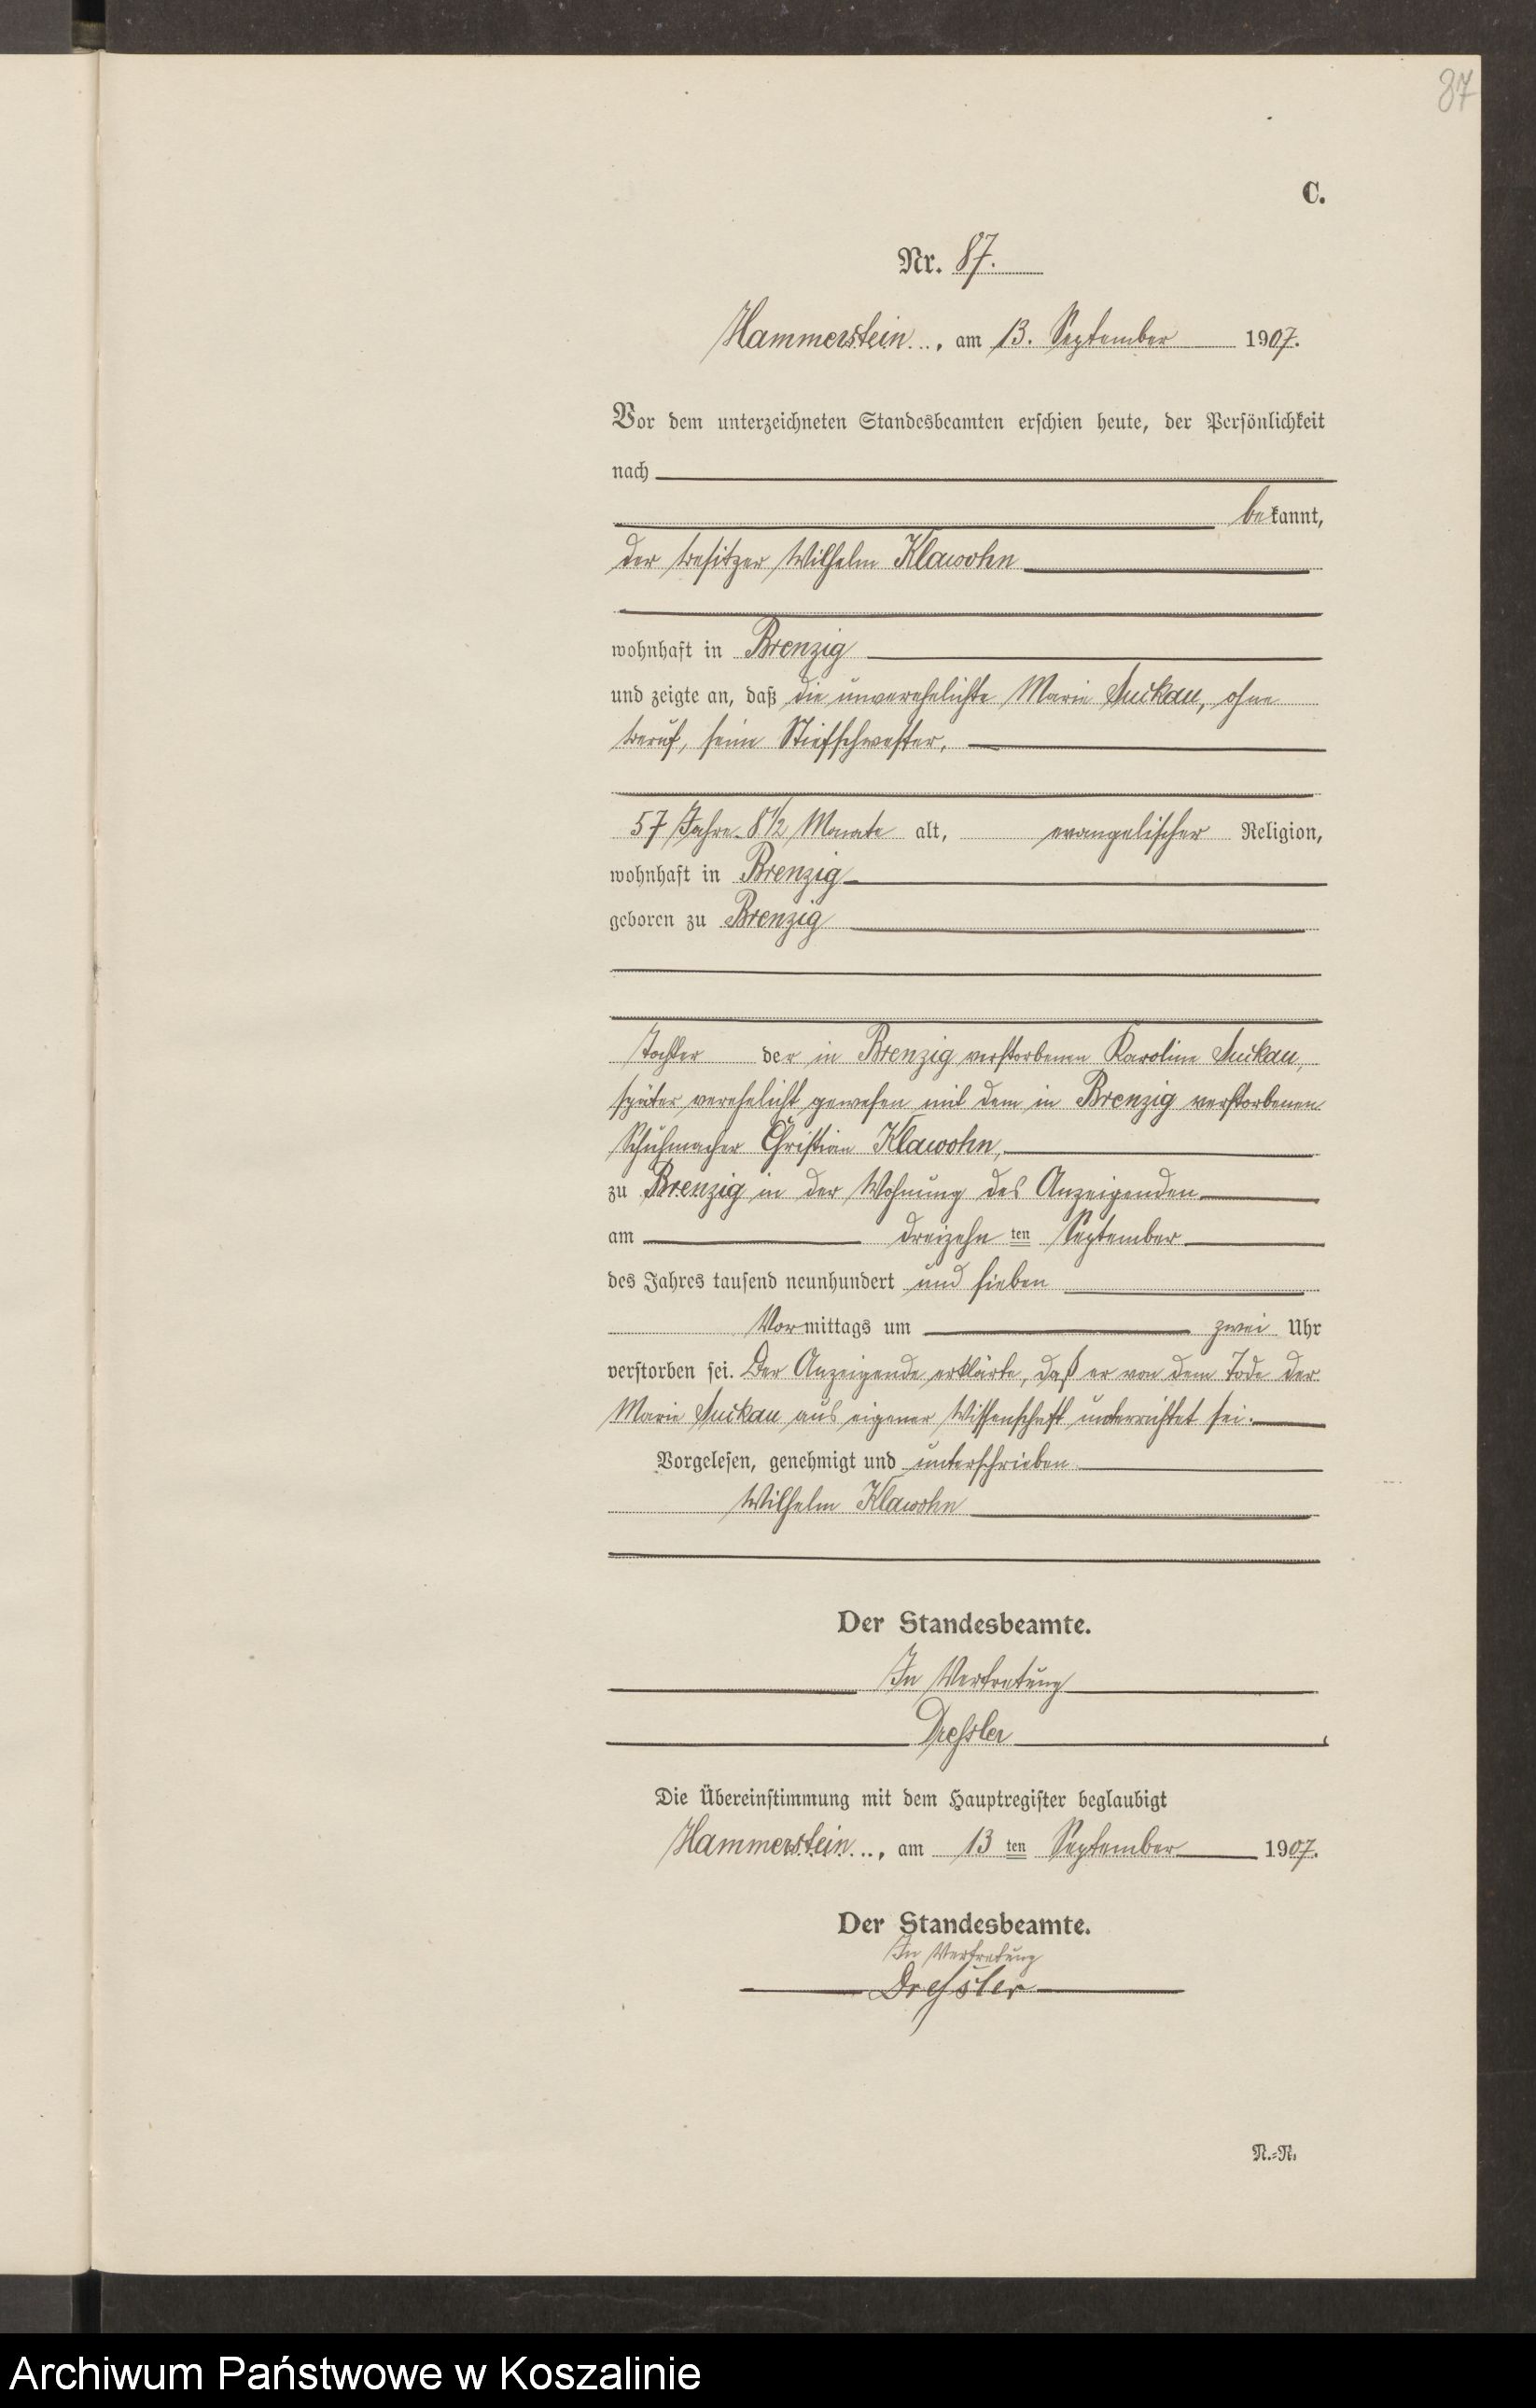 87
C.
Nr. 87.
Hammerstein, am 13. September 1907.
Vor dem unterzeichneten Standesbeamten erschien heute, der Persönlichkeit
nach
bekannt,
der Besitzer Wilhelm Klawohn
wohnhaft in Brenzig
und zeigte an, daß die unverehelichte Marie Suckau, ohne
Beruf, seine Stiefschwester,
57 Jahre 8 1/2 Monate alt, evangelischer Religion,
wohnhaft in Brenzig
geboren zu Brenzig
Tochter der in Brenzig verstorbenen Karoline Suckau,
später verehelicht gewesen mit dem in Brenzig verstorbenen
Schuhmacher Christian Klawohn,
zu Brenzig in der Wohnung des Anzeigenden
am dreizehn ten September
des Jahres tausend neunhundert und sieben
Vormittags um zwei Uhr
verstorben sei. Der Anzeigende erklärte, daß er von dem Tode der
Marie Suckau aus eigener Wissenschaft unterrichtet sei.
Vorgelesen, genehmigt und unterschrieben
Wilhelm Klawohn
Der Standesbeamte.
In Vertretung
Dressler
Die Übereinstimmung mit dem Hauptregister beglaubigt
Hammerstein, am 13 ten September 1907.
Der Standesbeamte.
In Vertretung
Dressler
N.=R.
Archiwum Państwowe w Koszalinie